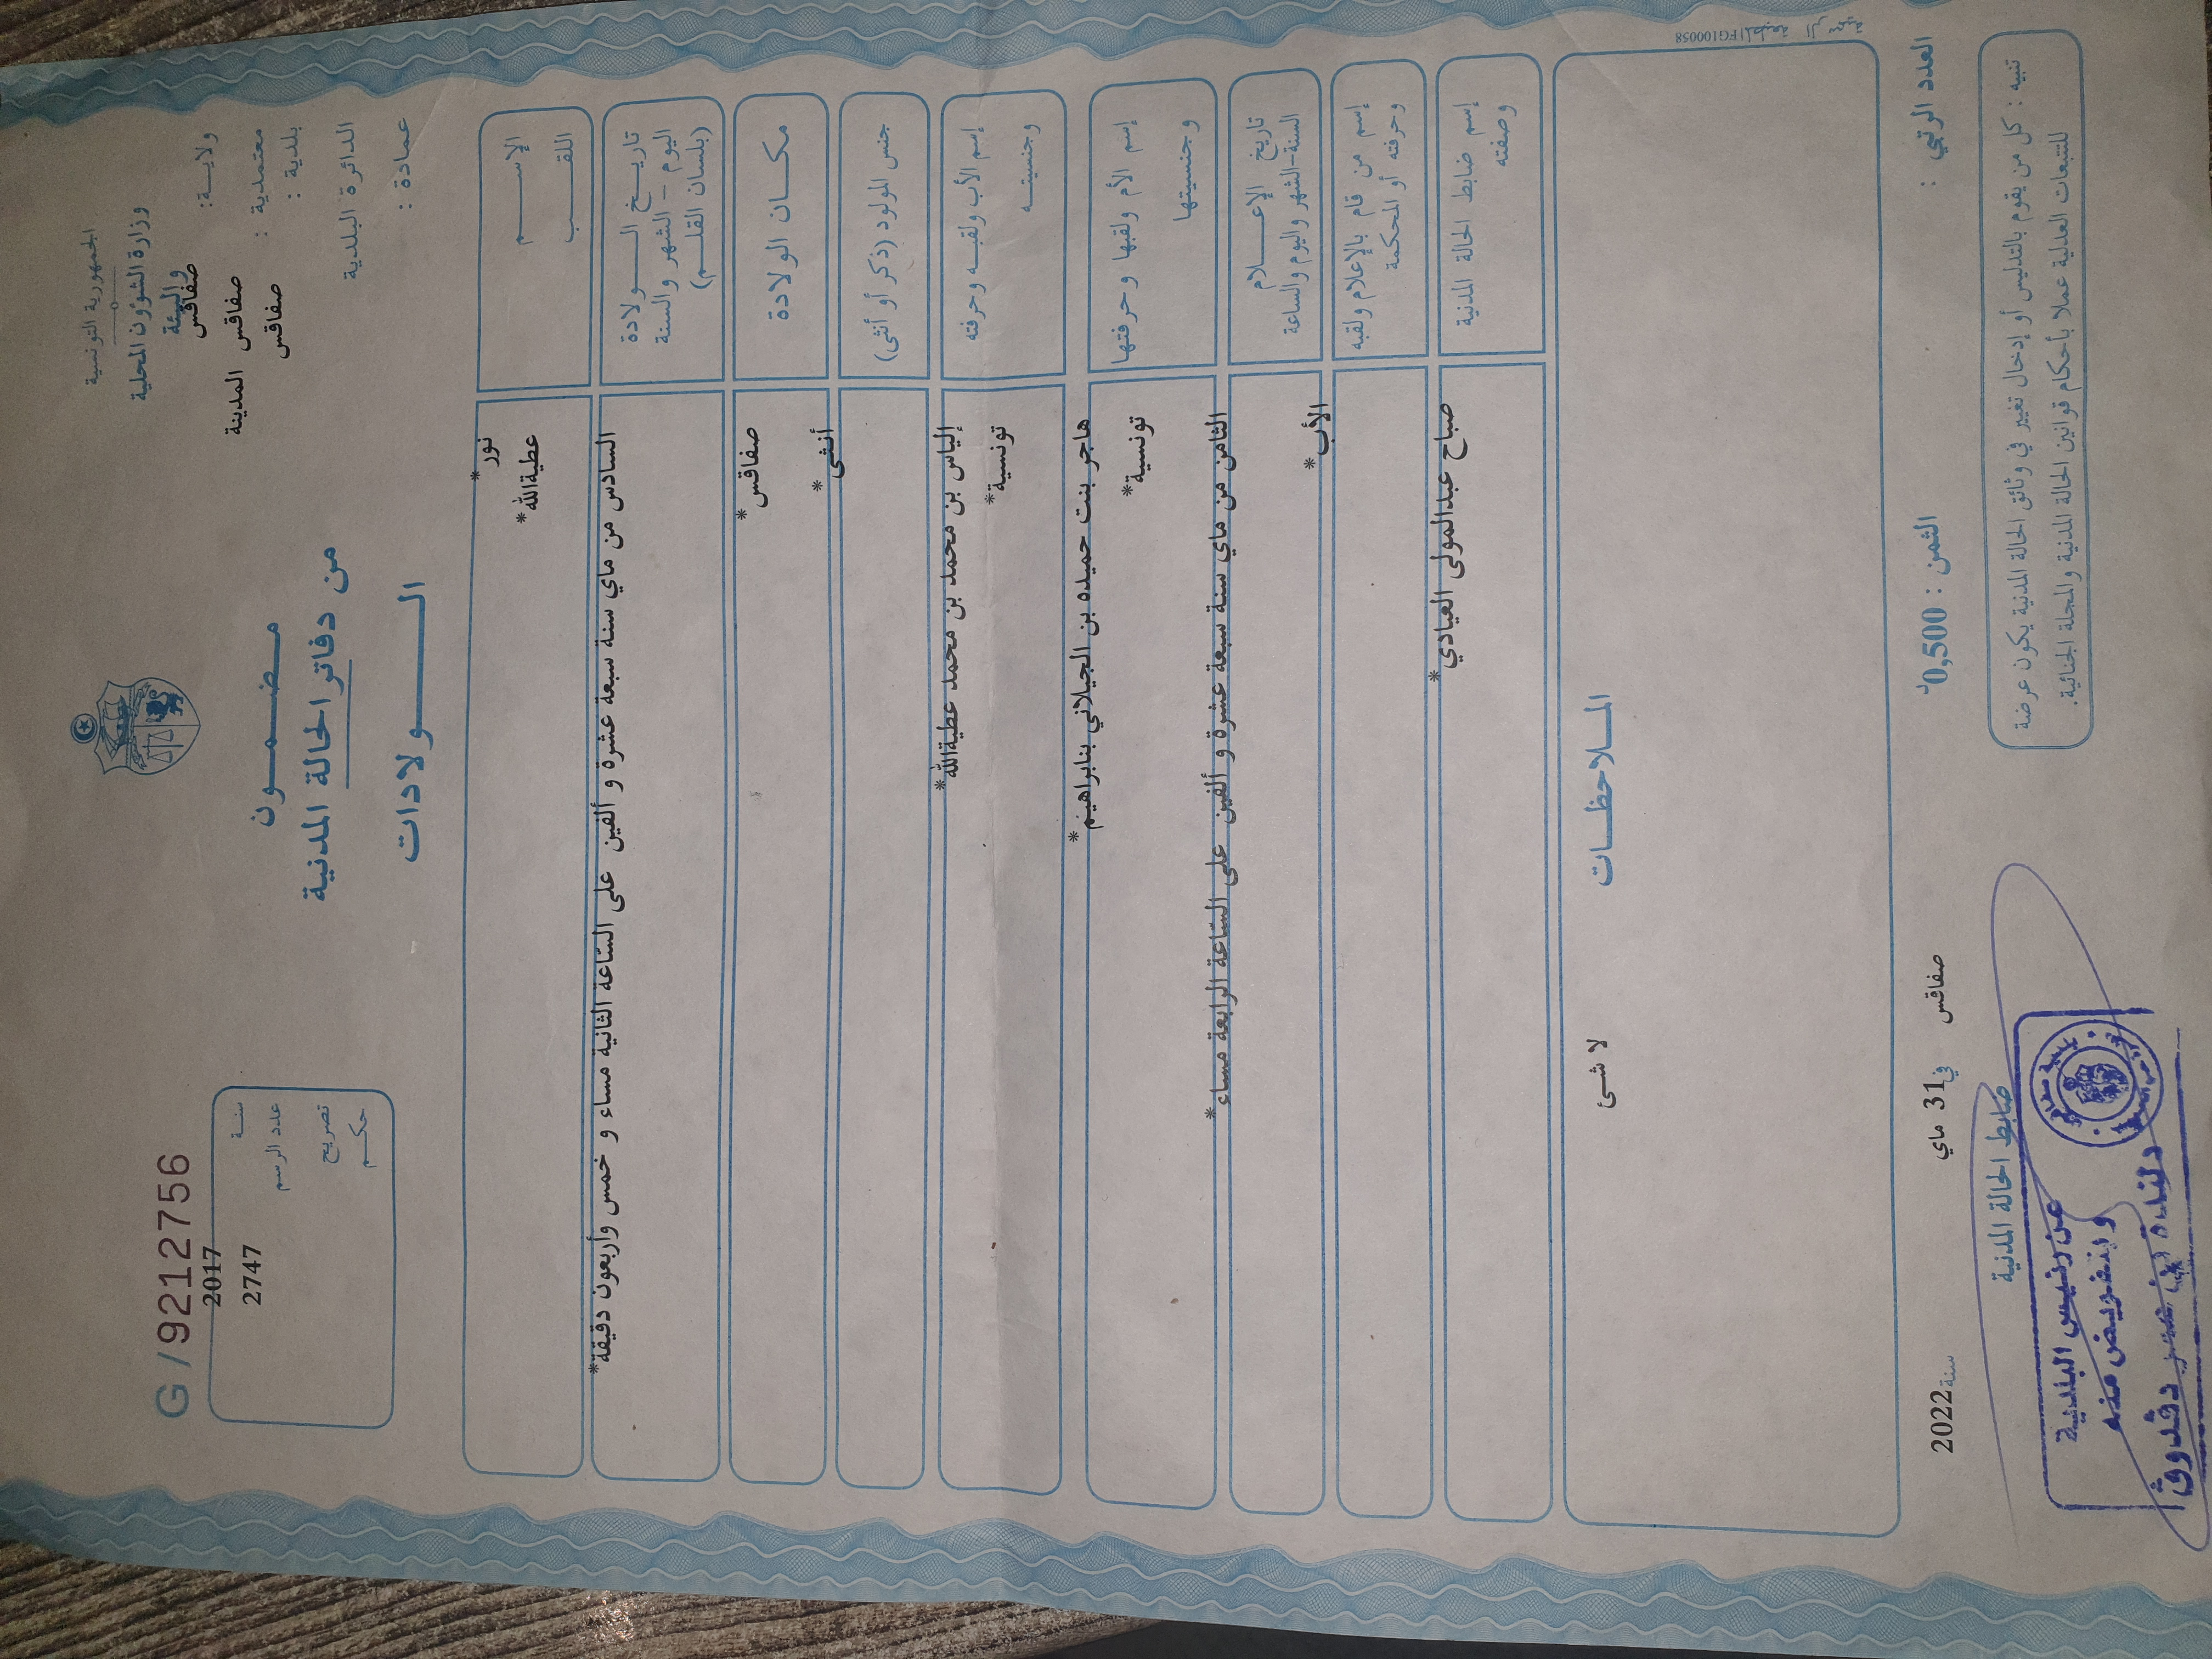 الجمهورية التونسية
وزارة الشؤون المحلية
والبيئة
ولاية: صفاقس
معتمدية : صفاقس المدينة
بلدية : صفاقس
الدائرة البلدية
عمادة :
مضمون
من دفاتر الحالة المدنية
الولادات
G /9212756
سنة 2017
عدد الرسم 2747
تصريح
حكم
الإسم
نور*
اللقب
عطيةالله*
تاريخ الولادة
اليوم - الشهر والسنة
(بلسان القلم)
السادس من ماي سنة سبعة عشرة و ألفين على الساعة الثانية مساء و خمس وأربعون دقيقة*
مكان الولادة
صفاقس*
جنس المولود (ذكر أو أنثى)
أنثى*
إسم الأب ولقبه وحرفته
إلياس بن محمد بن محمد عطيةالله*
وجنسيته
تونسية*
إسم الأم ولقبها وحرفتها
هاجر بنت حميده بن الجيلاني بنابراهيم*
وجنسيتها
تونسية*
تاريخ الإعلام
السنة-الشهر واليوم والساعة
الثامن من ماي سنة سبعة عشرة و ألفين على الساعة الرابعة مساء*
إسم من قام بالإعلام ولقبه
وحرفته أو المحكمة
الأب*
إسم ضابط الحالة المدنية
وصفته
صباح عبدالمولى العيادي*
الملاحظات
لا شئ
المطبعة الرسمية FG100058
العدد الرتبي :
الثمن : 0,500د
صفاقس في 31 ماي سنة 2022
تنبيه : كل من يقوم بالتدليس أو إدخال تغيير في وثائق الحالة المدنية يكون عرضة
للتتبعات العدلية عملا بأحكام قوانين الحالة المدنية والمجلة الجنائية.
ضابط الحالة المدنية
عن رئيس البلدية
وبتفويض منه